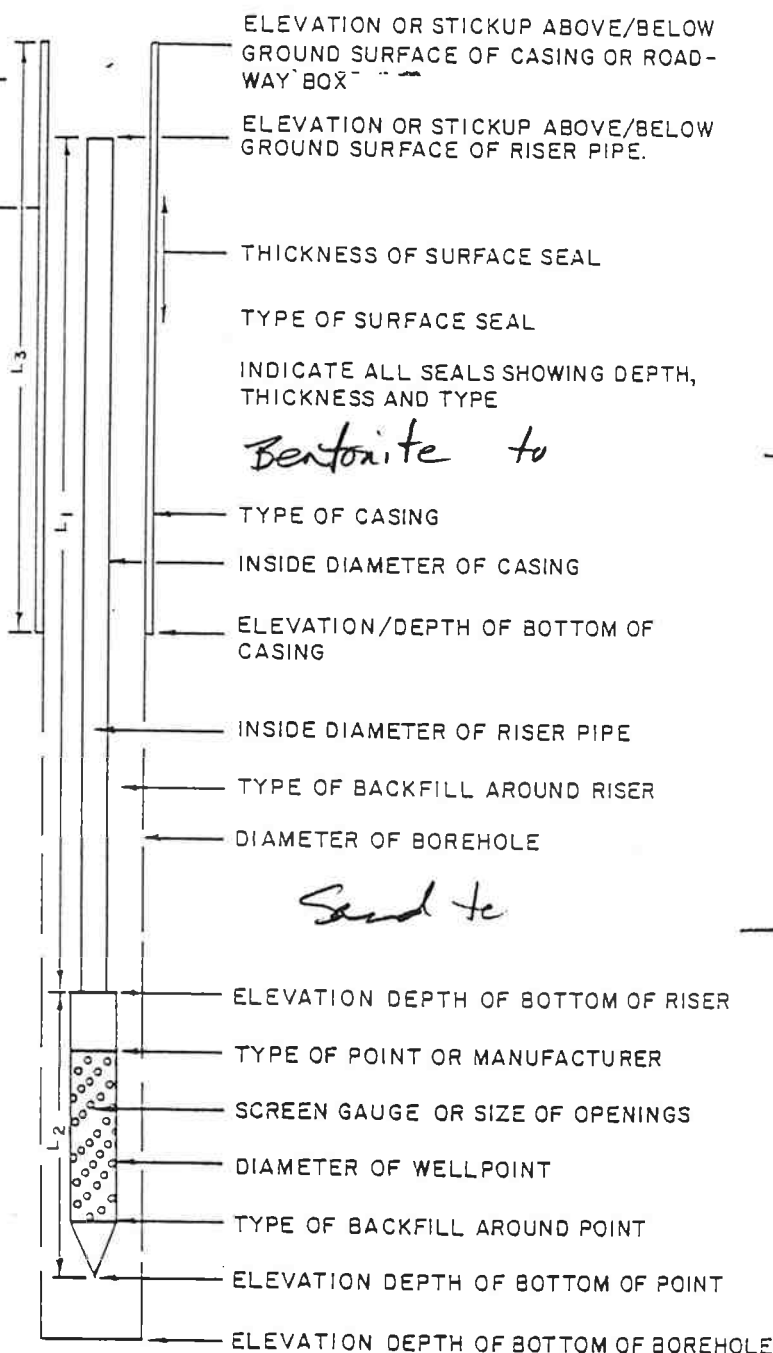 ELEVATION OR STICKUP ABOVE/BELOW
GROUND SURFACE OF CASING OR ROAD-
WAY BOX
ELEVATION OR STICKUP ABOVE/BELOW
GROUND SURFACE OF RISER PIPE.
THICKNESS OF SURFACE SEAL
TYPE OF SURFACE SEAL
L3
INDICATE ALL SEALS SHOWING DEPTH,
THICKNESS AND TYPE
Bentonite to
L1
TYPE OF CASING
INSIDE DIAMETER OF CASING
ELEVATION/DEPTH OF BOTTOM OF
CASING
INSIDE DIAMETER OF RISER PIPE
TYPE OF BACKFILL AROUND RISER
DIAMETER OF BOREHOLE
Sand to
ELEVATION DEPTH OF BOTTOM OF RISER
TYPE OF POINT OR MANUFACTURER
SCREEN GAUGE OR SIZE OF OPENINGS
L2
DIAMETER OF WELLPOINT
TYPE OF BACKFILL AROUND POINT
ELEVATION DEPTH OF BOTTOM OF POINT
ELEVATION DEPTH OF BOTTOM OF BOREHOLE